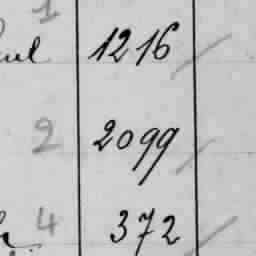 1
1216
2
2099
4
372